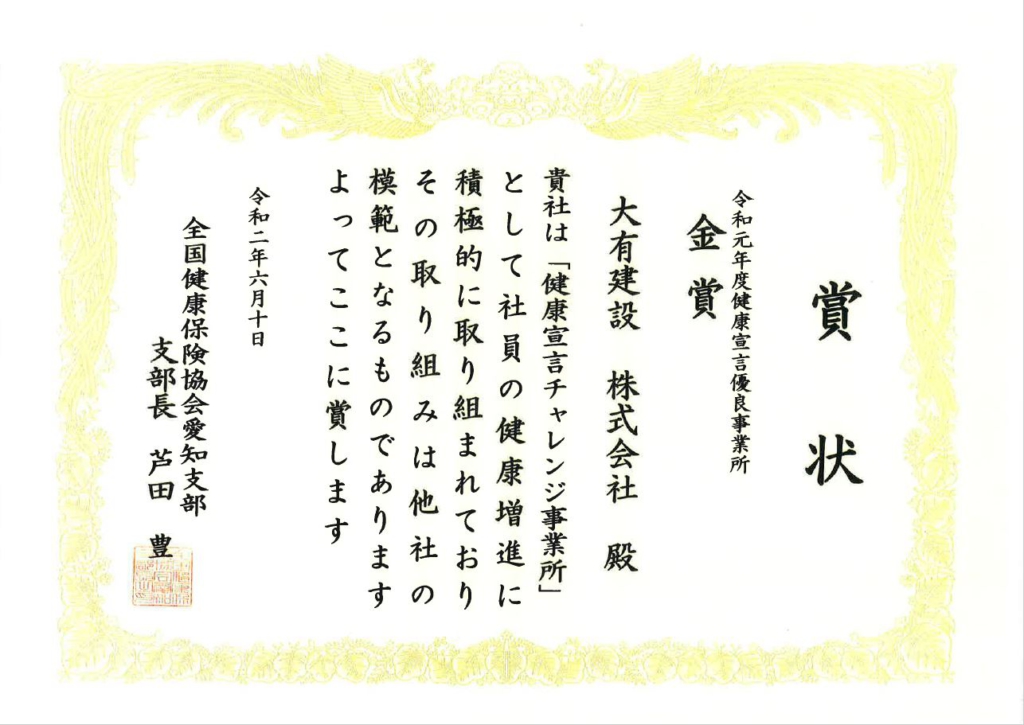 賞状
令和元年度健康宣言優良事業所
金賞
大有建設 株式会社 殿
貴社は「健康宣言チャレンジ事業所」
として社員の健康増進に
積極的に取り組まれており
その取り組みは他社の
模範となるものであります
よってここに賞します
令和二年六月十日
全国健康保険協会愛知支部
支部長 芦田 豊